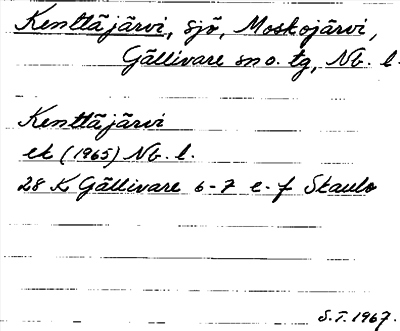 Kenttäjärvi, sjö, Moskojärvi,
Gällivare sn o. tg, Nb. l.
Kenttäjärvi
ek (1965) Nb. l.
28 K Gällivare 6-7 e-f Skaulo
S.T. 1967.